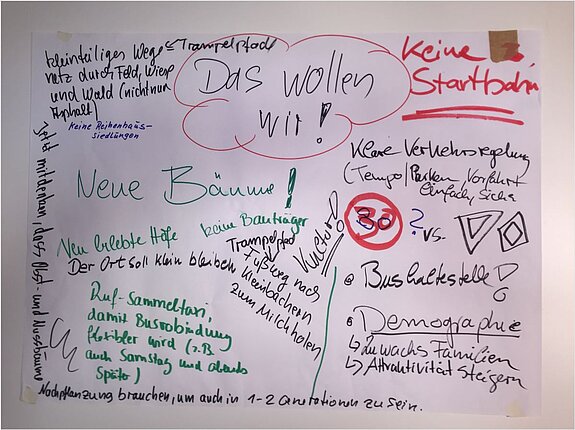 kleinteiliges Wege-
netz durch Feld, Wiese
und Wald (nicht nur
Asphalt)
= Trampelpfade
Keine Reihenhaus-
siedlungen
Das wollen
wir!
Keine 3.
Startbahn
Klare Verkehrsregelung
(Tempo/Parken, Vorfahrt
einfach, sicher
30 ? vs.
Neue Bäume!
keine Bauträger
Kultur!
Neu belebte Höfe
Der Ort soll klein bleiben
Trampelpfad
Fußweg nach
Kleinbächern
zum Milchholen
Bushaltestelle ?
Ruf-Sammeltaxi,
damit Busanbindung
flexibler wird (z.B.
auch Samstag und abends
später)
Demographie
↳ Zuwachs Familien
↳ Attraktivität steigern
Geld mit denken, dass Obst- und Nussbäume
Nachpflanzung brauchen, um auch in 1-2 Generationen zu sein.